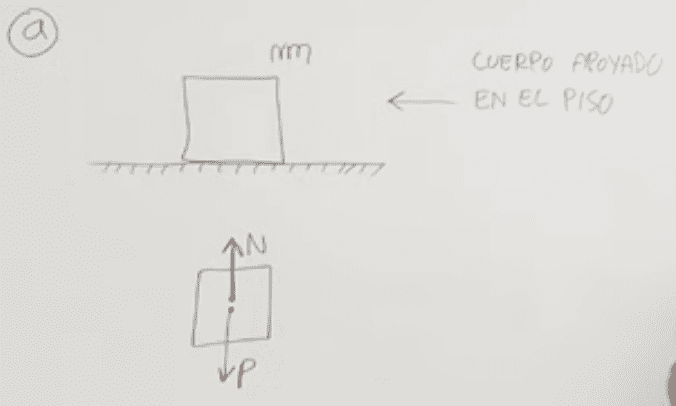 a
m
CUERPO APOYADO
EN EL PISO
N
P